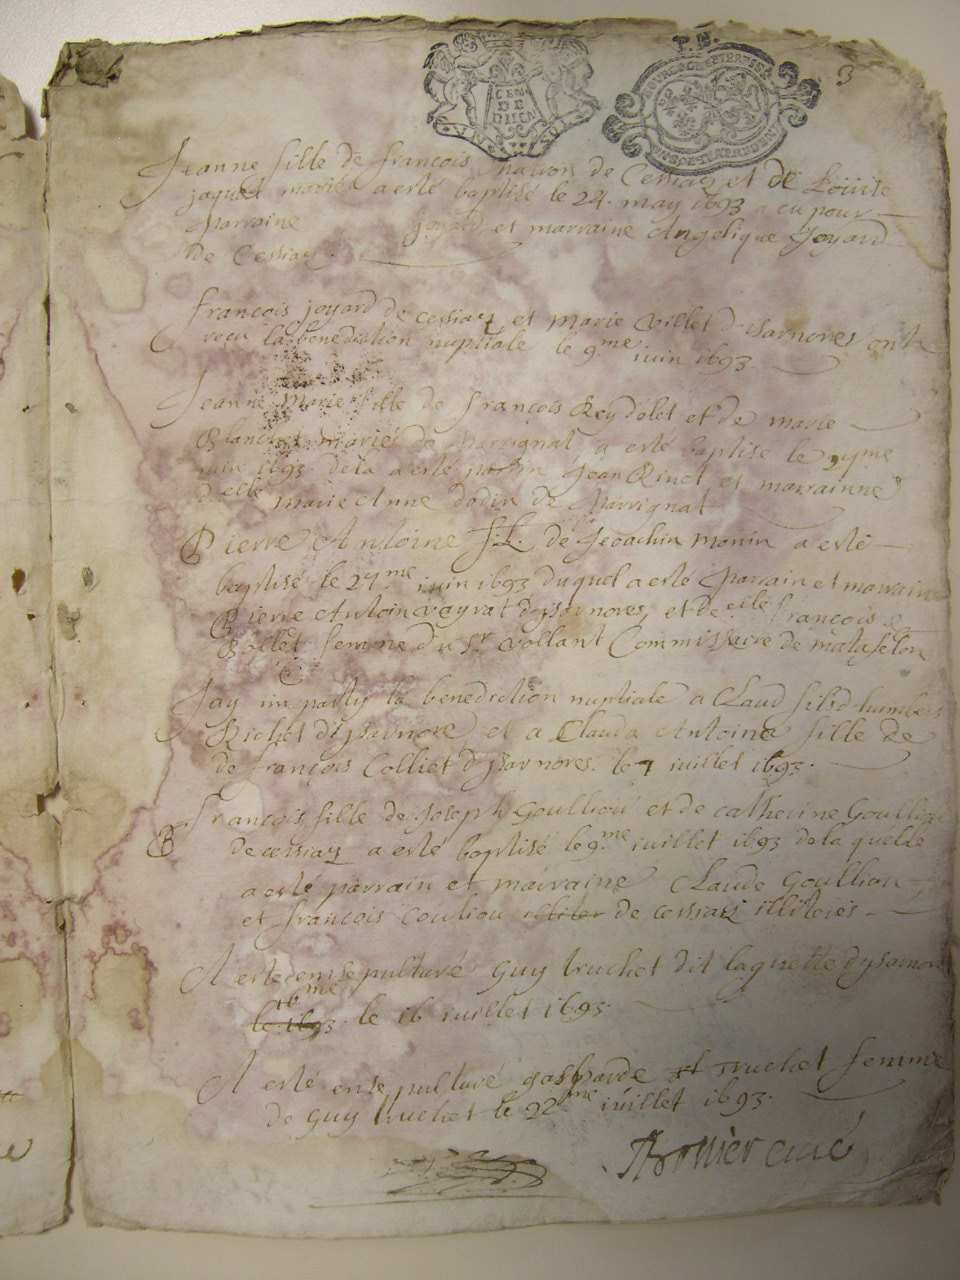 P.N. 3
CEN DE DIEM
Jeanne fille de françois maron de Cessiaz et de Louise
jaquet mariés a esté baptisé le 24. may 1693 a eu pour
Parraine joyard et marraine Angelique Joyard
de Cessiaz.
françois joyard de cessiaz et marie Villet d'Isarnores ont
receu la benediction nuptiale le 9me iuin 1693.
Jeanne Marie fille de françois Reydelet et de marie
Blanchet mariés de Marrignat a esté baptise le
iuin 1693 de la a esté Jean Rinet et marrainne
delle marie Anne dodin de Marrignat
Pierre Antoine f.L. de Jeoachin monin a esté
baptisé le 24me iuin 1693 duquel a esté Parrain et marraine
Pierre Antoine veyrat dysarnores, et delle françoise
Bollet femme du Sr vollant Commissaere de matafelon
Jay imparty la benediction nuptiale a Claud fils d humbert
Richet dysarnore et a Clauda Antoina fille de
de françois Colliet dysarnores. le 7 iuillet 1693.
B françois fille de Joseph Goulliou et de catherine Goulliou
de cessiaz a esté baptisé le 9me iuillet 1693 de la quelle
a esté parrain et mairaine Claude Goullion
et françois Couliou illiter de cessiaz illiterés
A esté ensepulturé Guy truchet dit laguette dysarnore
16me
le 1693 le 16 iuillet 1693.
A esté ensepulturé gasparde et Truchet femme
de Guy truchet le 22me iuillet 1693.
curé